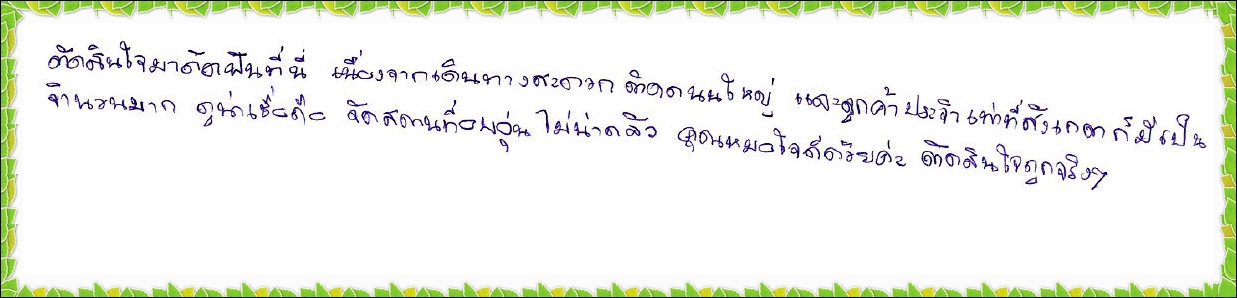 ตัดสินใจมาดัดฟันที่นี่ เนื่องจากเดินทางสะดวก ติดถนนใหญ่ และลูกค้าประจำเท่าที่สังเกตก็มีเป็น
จำนวนมาก ดูน่าเชื่อถือ จัดสถานที่อบอุ่น ไม่น่ากลัว คุณหมอใจดีด้วยค่ะ ตัดสินใจถูกจริงๆ